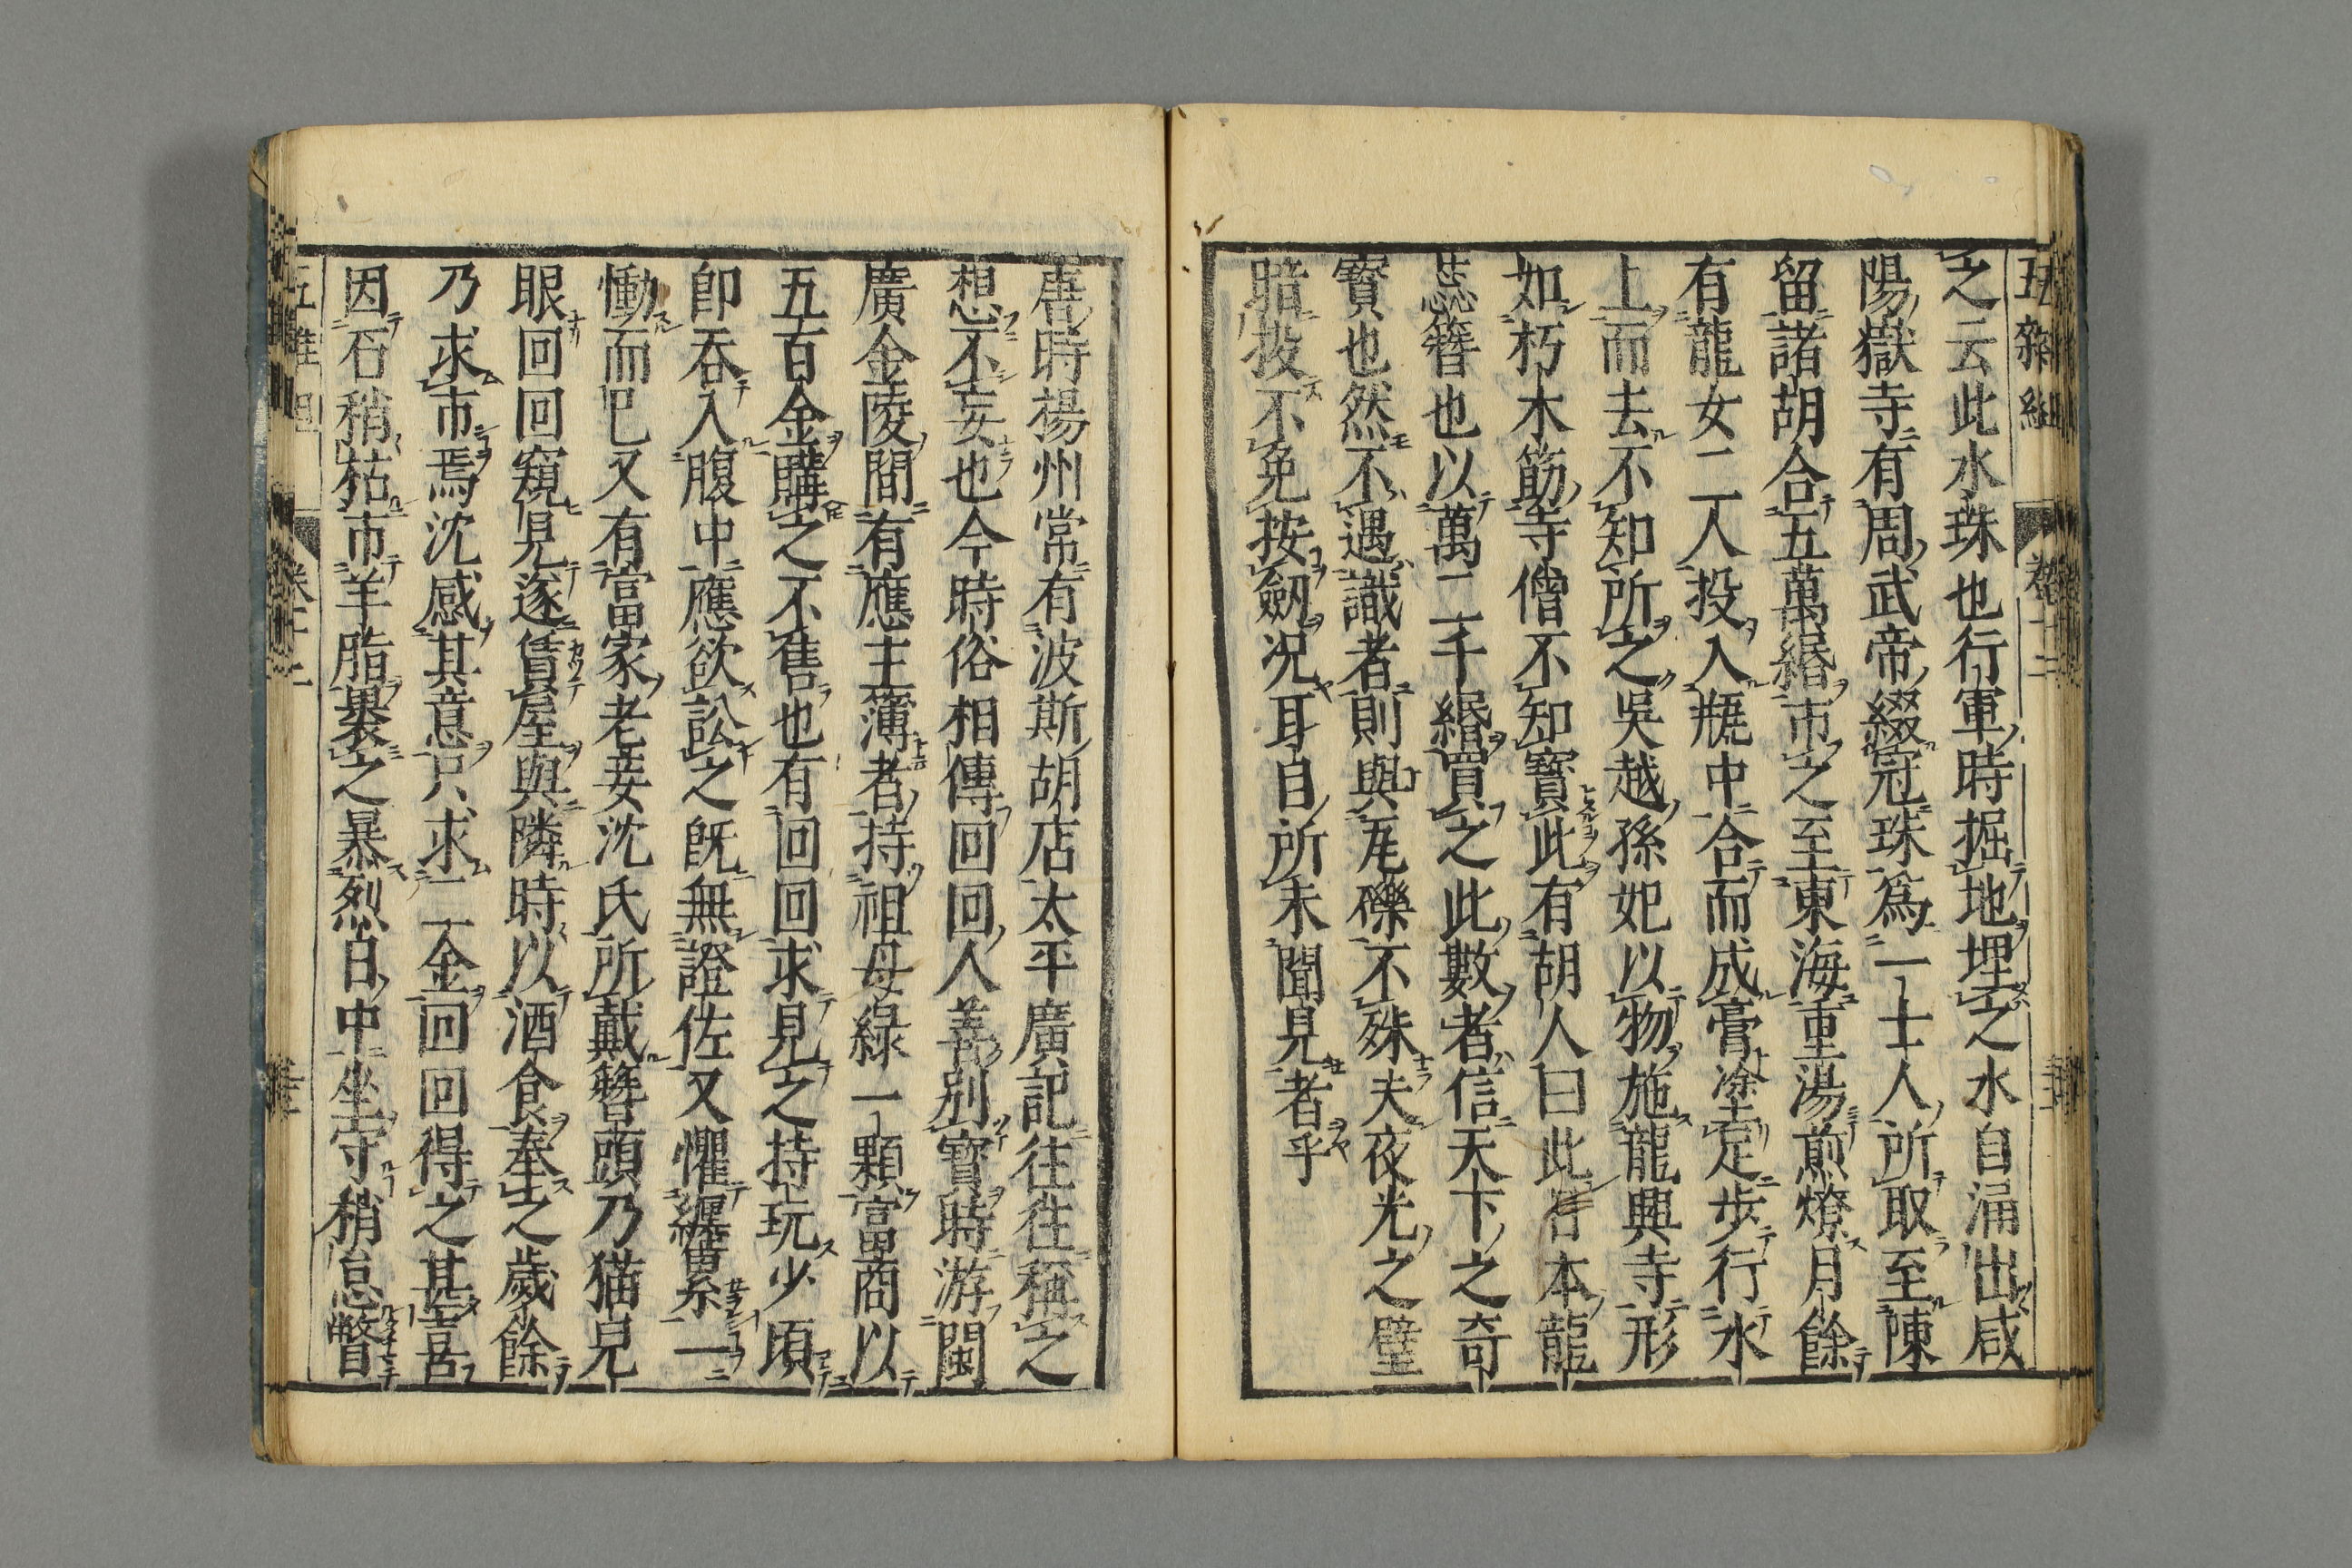 五雜組 卷十二
之云此水珠也行軍時掘地埋之水自涌出咸
陽嶽寺有周武帝綴冠珠爲一士人所取至陳
留諸胡合五萬緡市之至東海重湯煎燎月餘
有龍女二人投入瓶中合而成膏塗足步行水
上而去不知所之吳越孫妃以物施龍興寺形
如朽木筯寺僧不知寶此有胡人曰此日本龍
蕊簪也以萬二千緡買之此數者信天下之奇
寶也然不遇識者則與瓦礫不殊夫夜光之璧
暗投不免按劔况耳目所未聞見者乎
唐時揚州常有波斯胡店太平廣記往往稱之
想不妄也今時俗相傳回回人善別寶時游閩
廣金陵間有應主簿者持祖母綠一顆富商以
五百金購之不售也有回回求見之持玩少頃
卽吞入腹中應欲訟之旣無證佐又懼纏累一
慟而巳又有富家老妾沈氏所戴簪頭乃猫兒
眼回回窺見遂賃屋與隣時以酒食奉之歲餘
乃求市焉沈感其意只求二金回回得之甚喜
因石稍枯市羊脂裹之暴烈日中坐守稍怠瞥